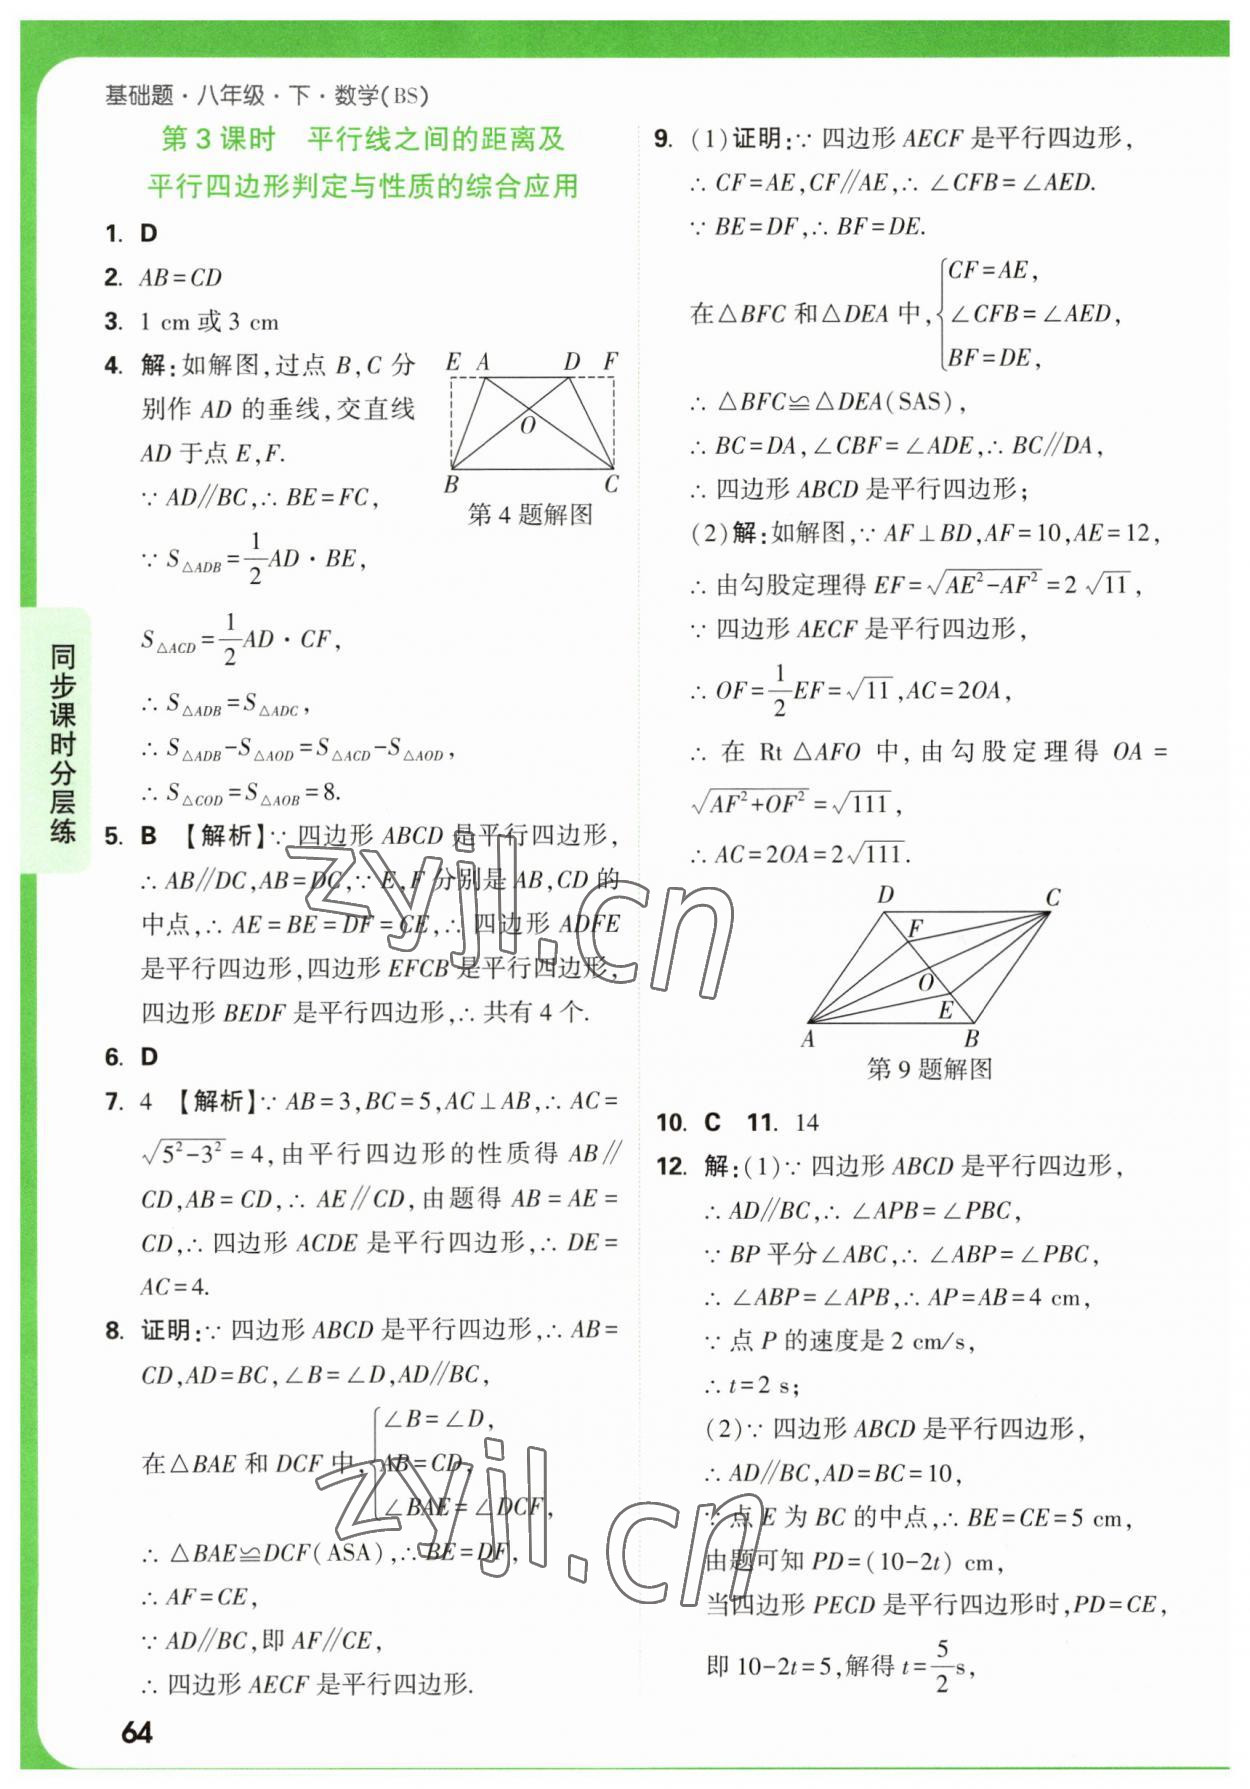 基础题·八年级·下·数学(BS)
第 3 课时　平行线之间的距离及
平行四边形判定与性质的综合应用
1. D
2. AB=CD
3. 1 cm 或 3 cm
4. 解:如解图,过点 B,C 分
别作 AD 的垂线,交直线
AD 于点 E,F.
∵ AD∥BC,∴ BE=FC,
∵ S△ADB=1/2AD·BE,
S△ACD=1/2AD·CF,
∴ S△ADB=S△ADC,
∴ S△ADB-S△AOD=S△ACD-S△AOD,
∴ S△COD=S△AOB=8.
E A D F
O
B C
第 4 题解图
5. B 【解析】∵ 四边形 ABCD 是平行四边形,
∴ AB∥DC,AB=DC,∵ E,F 分别是 AB,CD 的
中点,∴ AE=BE=DF=CE,∴ 四边形 ADFE
是平行四边形,四边形 EFCB 是平行四边形,
四边形 BEDF 是平行四边形,∴ 共有 4 个.
6. D
7. 4 【解析】∵ AB=3,BC=5,AC⊥AB,∴ AC=
√(5²-3²)=4,由平行四边形的性质得 AB∥
CD,AB=CD,∴ AE∥CD,由题得 AB=AE=
CD,∴ 四边形 ACDE 是平行四边形,∴ DE=
AC=4.
8. 证明:∵ 四边形 ABCD 是平行四边形,∴ AB=
CD,AD=BC,∠B=∠D,AD∥BC,
∠B=∠D,
在△BAE 和 DCF 中, AB=CD,
∠BAE=∠DCF,
∴ △BAE≌DCF(ASA),∴ BE=DF,
∴ AF=CE,
∵ AD∥BC,即 AF∥CE,
∴ 四边形 AECF 是平行四边形.
9. (1)证明:∵ 四边形 AECF 是平行四边形,
∴ CF=AE,CF∥AE,∴ ∠CFB=∠AED.
∵ BE=DF,∴ BF=DE.
CF=AE,
在△BFC 和△DEA 中, ∠CFB=∠AED,
BF=DE,
∴ △BFC≌△DEA(SAS),
∴ BC=DA,∠CBF=∠ADE,∴ BC∥DA,
∴ 四边形 ABCD 是平行四边形;
(2)解:如解图,∵ AF⊥BD,AF=10,AE=12,
∴ 由勾股定理得 EF=√(AE²-AF²)=2√11,
∵ 四边形 AECF 是平行四边形,
∴ OF=1/2EF=√11,AC=2OA,
∴ 在 Rt△AFO 中,由勾股定理得 OA=
√(AF²+OF²)=√111,
∴ AC=2OA=2√111.
D C
F
O
E
A B
第 9 题解图
10. C 11. 14
12. 解:(1)∵ 四边形 ABCD 是平行四边形,
∴ AD∥BC,∴ ∠APB=∠PBC,
∵ BP 平分∠ABC,∴ ∠ABP=∠PBC,
∴ ∠ABP=∠APB,∴ AP=AB=4 cm,
∵ 点 P 的速度是 2 cm/s,
∴ t=2 s;
(2)∵ 四边形 ABCD 是平行四边形,
∴ AD∥BC,AD=BC=10,
∵ 点 E 为 BC 的中点,∴ BE=CE=5 cm,
由题可知 PD=(10-2t) cm,
当四边形 PECD 是平行四边形时,PD=CE,
即 10-2t=5,解得 t=5/2s,
同步课时分层练
64
zyjl.cn
zyjl.cn